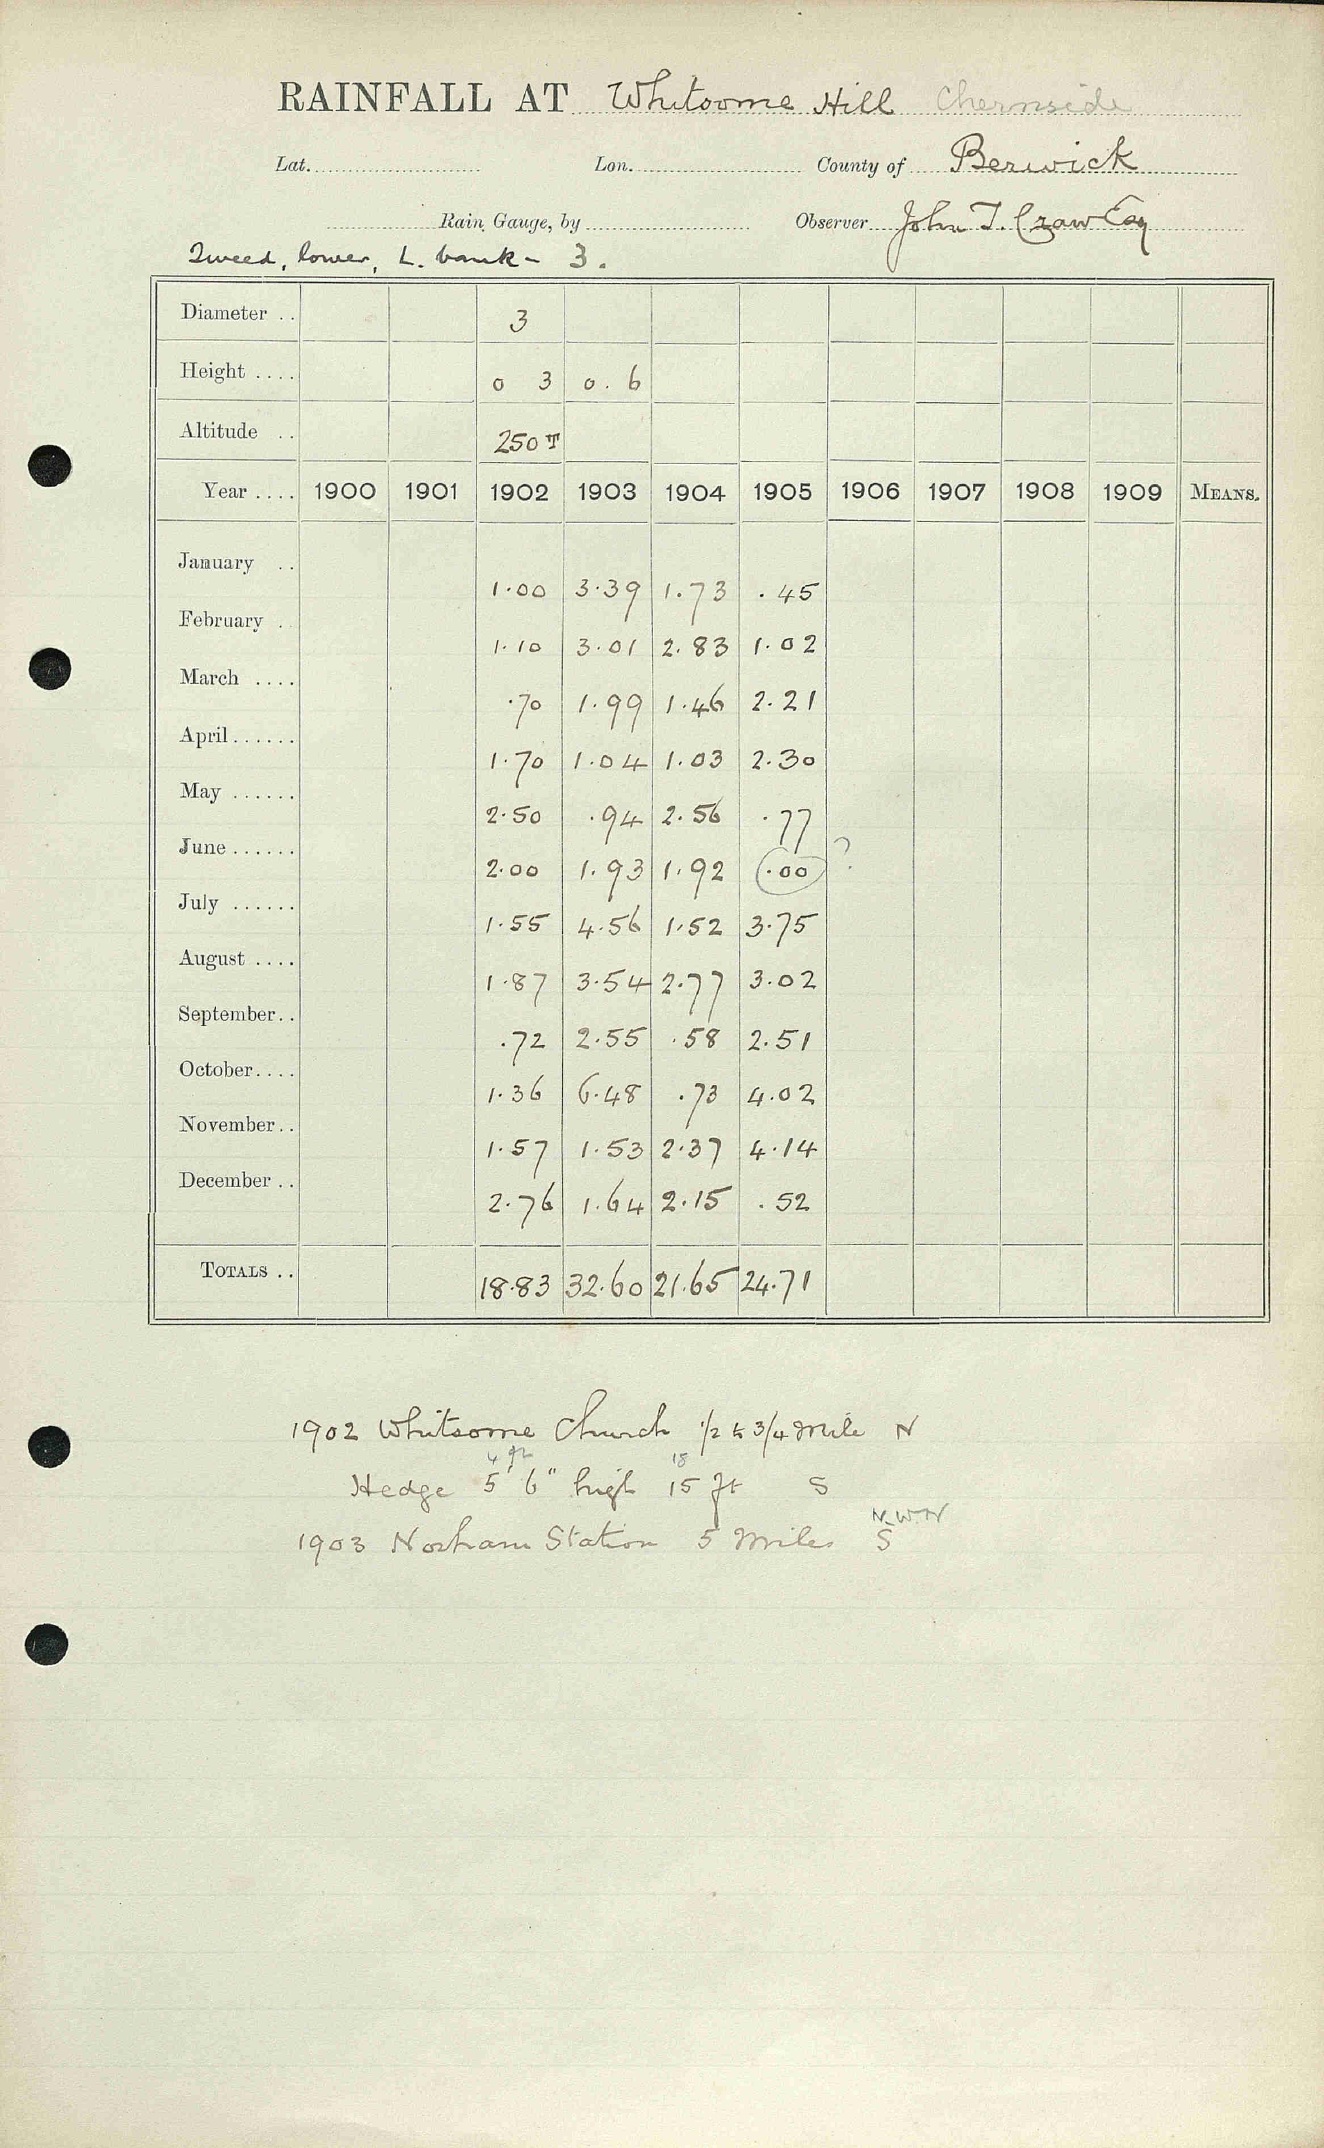 RAINFALL AT Whitsome Hill Chernside
Lat. Lon. County of Berwick
Rain Gauge, by Observer John T. Craw Esq
Tweed, lower, L. bank - 3.
Diameter .. 3
Height .... 0 3 0.6
Altitude .. 250 T
Year .... 1900 1901 1902 1903 1904 1905 1906 1907 1908 1909 MEANS.
January .. 1.00 3.39 1.73 .45
February .. 1.10 3.01 2.83 1.02
March .... .70 1.99 1.46 2.21
April ...... 1.70 1.04 1.03 2.30
May ...... 2.50 .94 2.56 .77
June ...... 2.00 1.93 1.92 .00 ?
July ...... 1.55 4.56 1.52 3.75
August .... 1.87 3.54 2.77 3.02
September .. .72 2.55 .58 2.51
October .... 1.36 6.48 .73 4.02
November .. 1.57 1.53 2.37 4.14
December .. 2.76 1.64 2.15 .52
TOTALS .. 18.83 32.60 21.65 24.71
1902 Whitsome Church 1/2 to 3/4 Mile N
4 ft 18
Hedge 5' 6" high 15 ft S
N.W.N
1903 Norham Station 5 Miles S